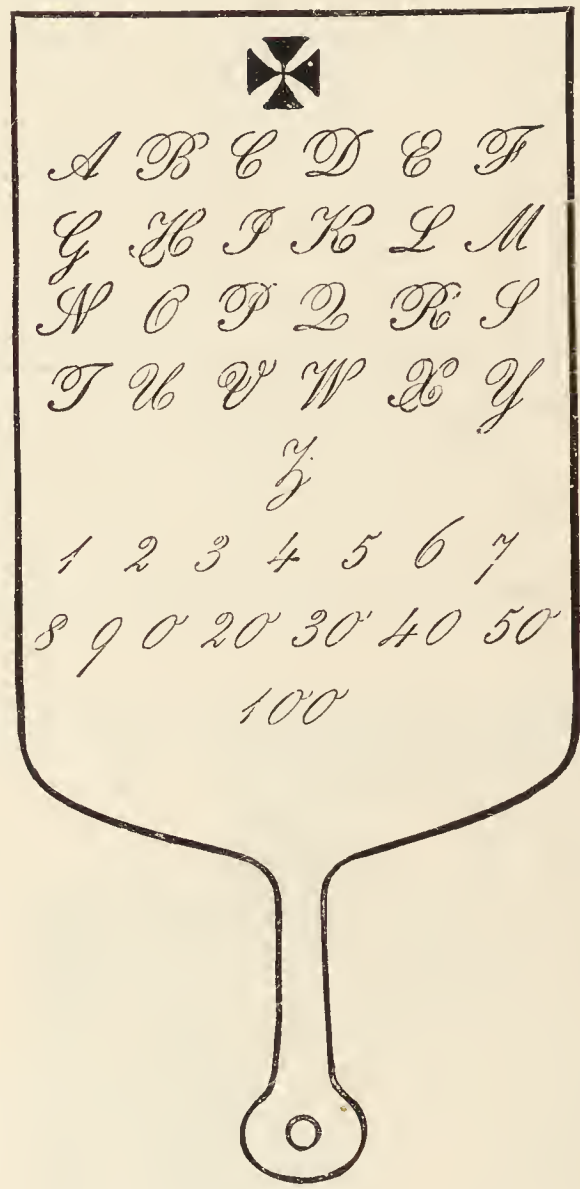 A B C D E F
G H I K L M
N O P Q R S
T U V W X Y
Z
1 2 3 4 5 6 7
8 9 0 20 30 40 50
100